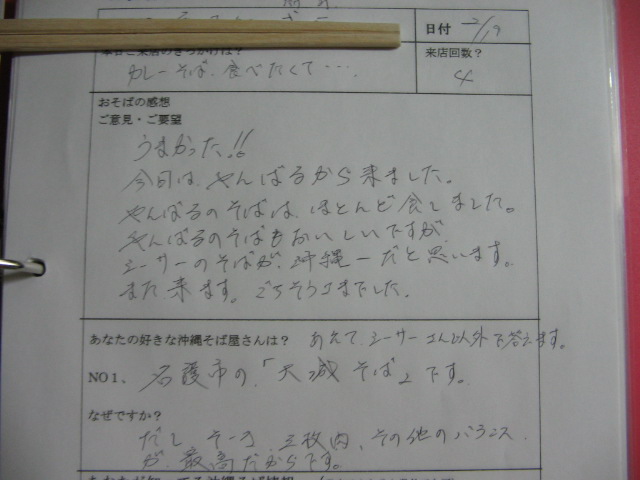 日付 2/19
本日ご来店のきっかけは? 来店回数?
カレーそば、食べたくて・・・. 4
おそばの感想
ご意見・ご要望
うまかった!!
今日は、やんばるから来ました。
やんばるのそばは、ほとんど食しました。
やんばるのそばもおいしいですが、
シーサーのそばが、沖縄一だと思います。
また来ます。ごちそうさまでした.
あなたの好きな沖縄そば屋さんは? あえて、シーサーさん以外で答えます。
NO1、 名護市の、「大城そば」です。
なぜですか?
だし そーき、三枚肉、その他のバランス
が、最高だからです。